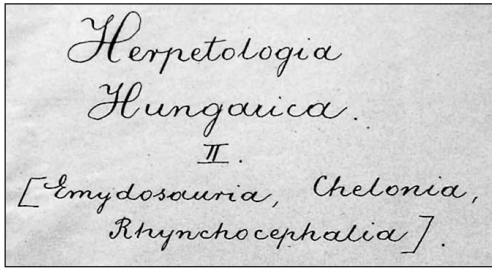 Herpetologia
Hungarica.
II.
[Emydosauria, Chelonia,
Rhynchocephalia].